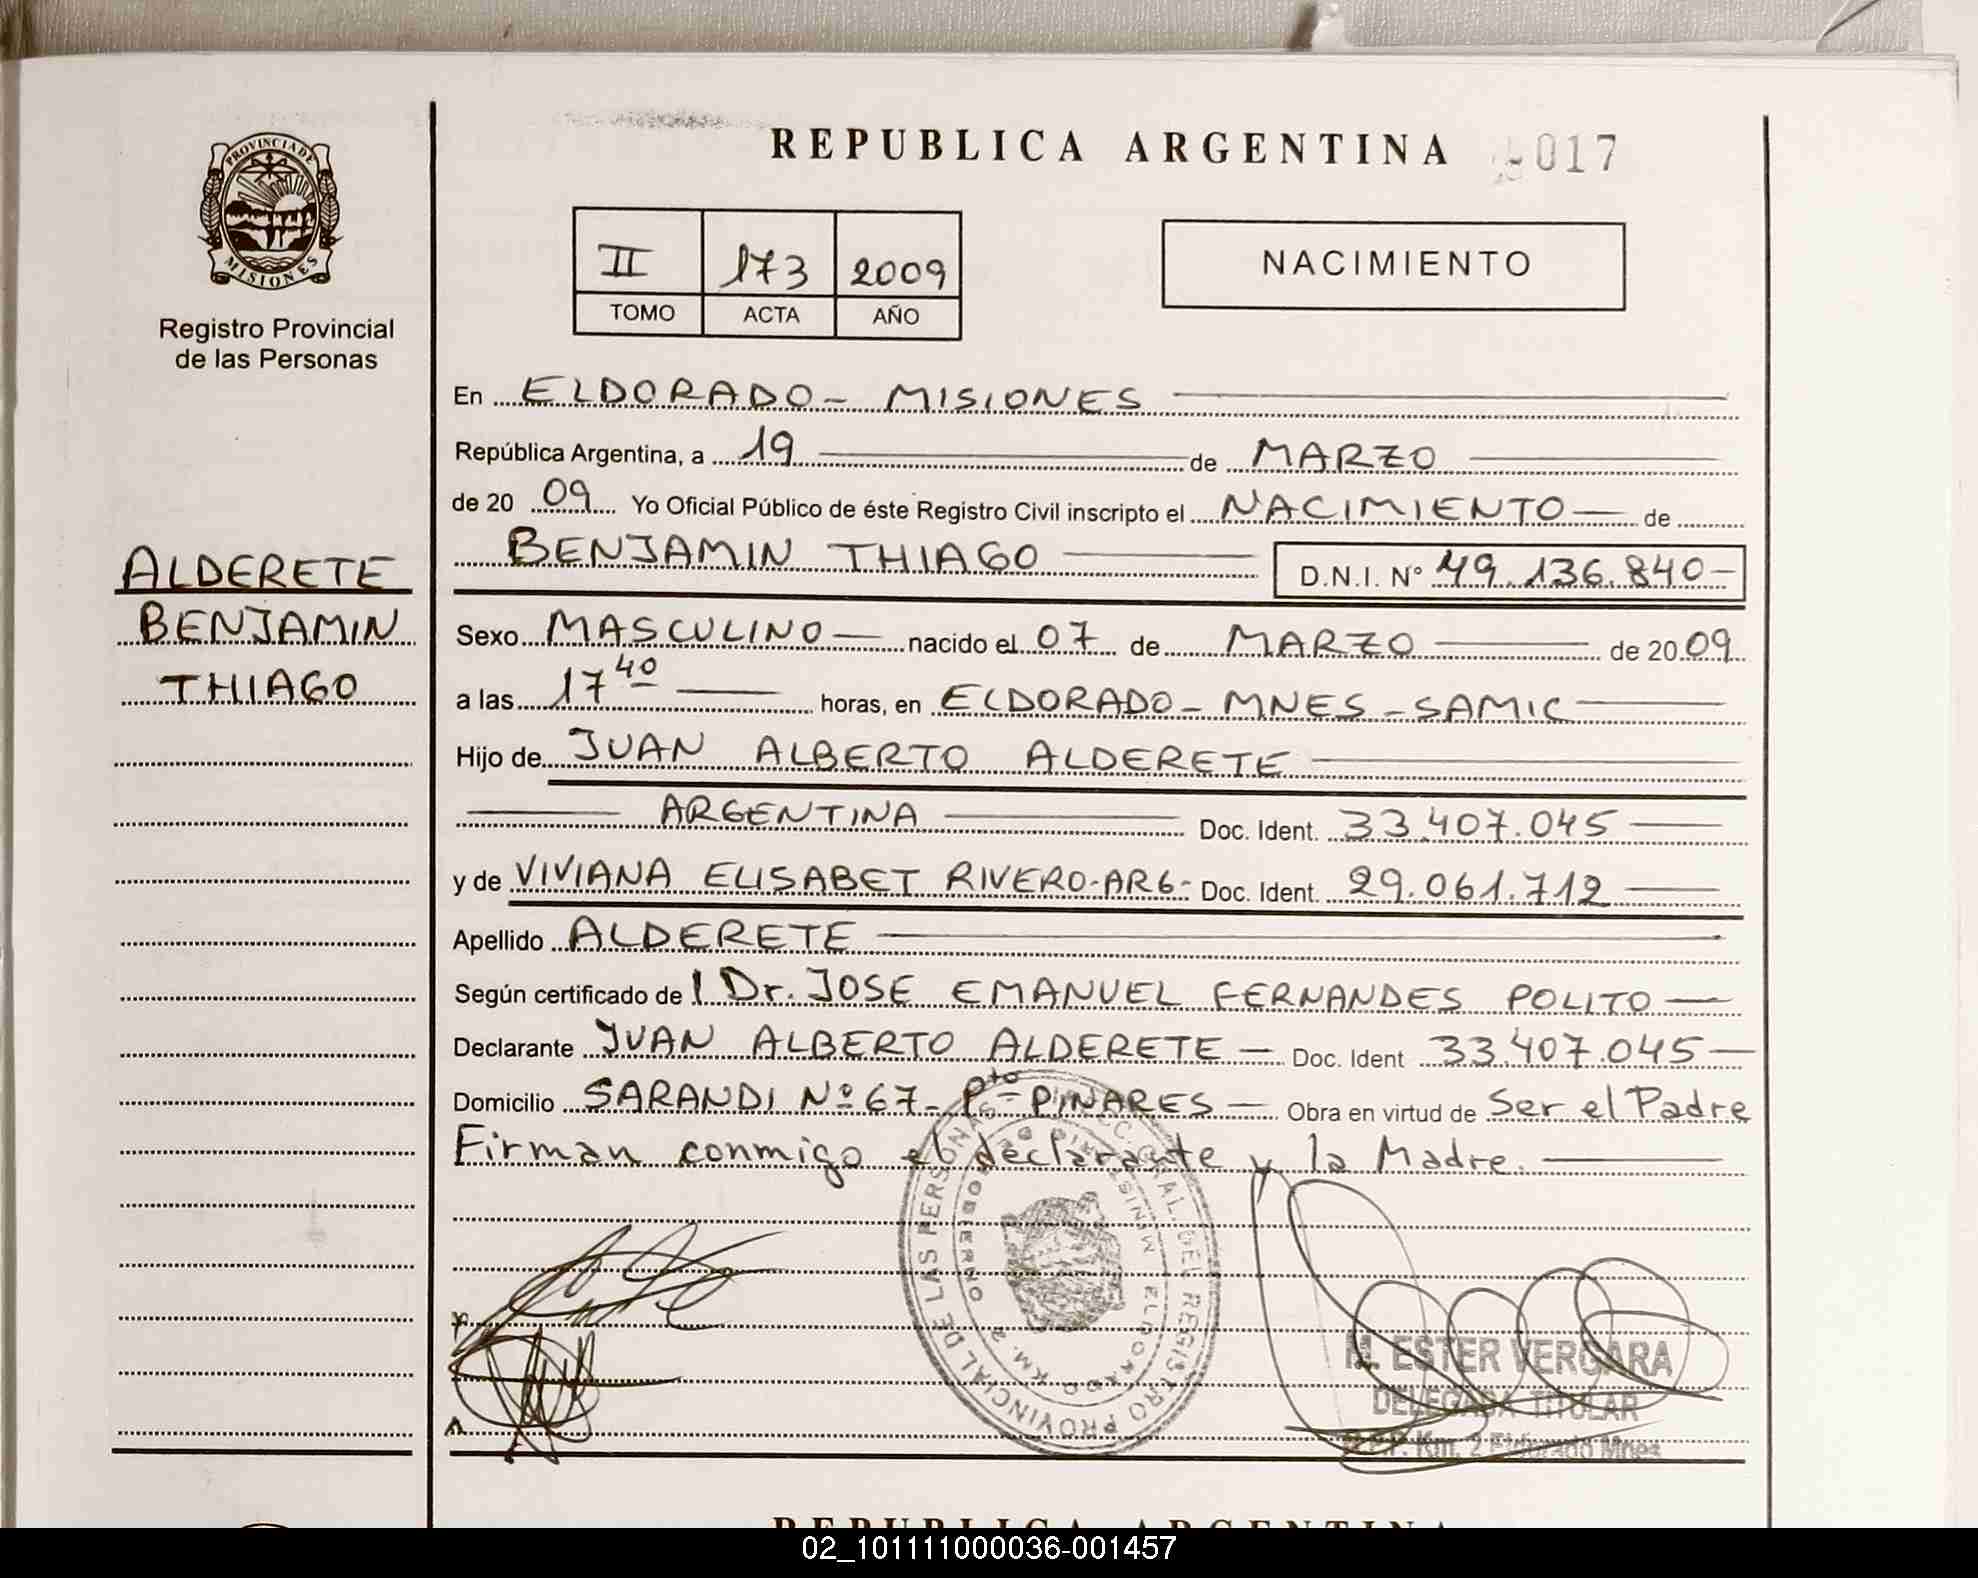 REPUBLICA ARGENTINA 017
PROVINCIA DE
MISIONES
Registro Provincial
de las Personas
II 173 2009
TOMO ACTA AÑO
NACIMIENTO
En ELDORADO - MISIONES
República Argentina, a 19 de MARZO
de 20 09 Yo Oficial Público de éste Registro Civil inscripto el NACIMIENTO de
BENJAMIN THIAGO D.N.I. Nº 49.136.840-
ALDERETE
BENJAMIN
THIAGO
Sexo MASCULINO nacido el 07 de MARZO de 20 09
a las 17 40 horas, en ELDORADO - MNES - SAMIC
Hijo de JUAN ALBERTO ALDERETE
ARGENTINA Doc. Ident. 33.407.045
y de VIVIANA ELISABET RIVERO-ARG- Doc. Ident. 29.061.712
Apellido ALDERETE
Según certificado de l Dr. JOSE EMANUEL FERNANDES POLITO
Declarante JUAN ALBERTO ALDERETE Doc. Ident 33.407.045
Domicilio SARANDI Nº 67 - Pto PINARES Obra en virtud de Ser el Padre
Firman conmigo el declarante y la Madre.
DE LAS PERSONAS GRAL. DEL REGISTRO PROVINCIAL
GOBIERNO ELDORADO KM. 2
M. ESTER VERGARA
DELEGADA TITULAR
Km. 2 Eldorado Mnes.
REPUBLICA ARGENTINA
02_101111000036-001457